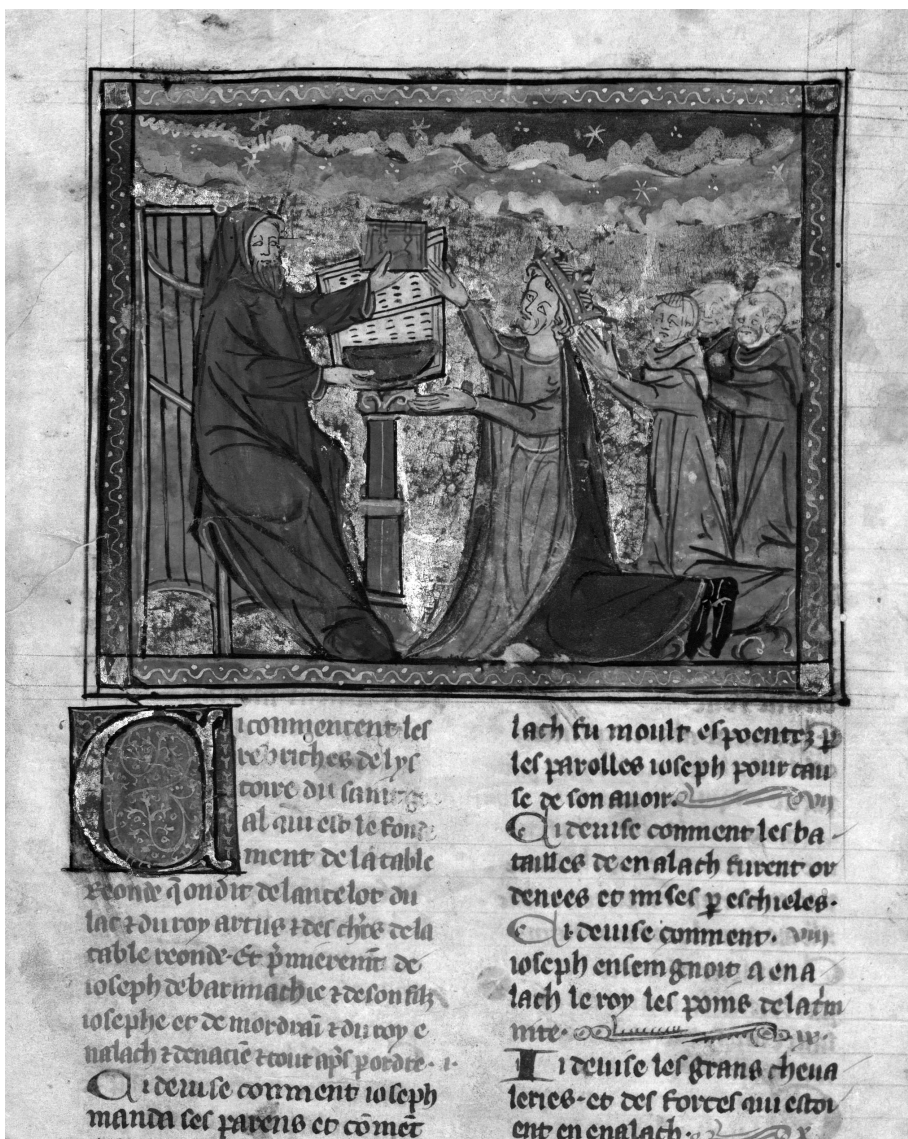 Ci commencent les
rebriches de lys
toire du saint gre
al qui est le fonde
ment de la table
reonde q̄ on dit de lancelot du
lac ⁊ du roy artus ⁊ des ch̄rs de la
table reonde. Et p̄mierem̄t de
ioseph de barimachie ⁊ de son filz
iosephe et de mordrai ⁊ du roy e
nalach ⁊ de nacie ⁊ tout ap̄s p ordre. .i.
Ci deuise comment ioseph
manda ses parens et cōmēt
lach fu moult espoentez p
les parolles ioseph pour cau
se de son auoir. vii
Ci deuise comment les ba
tailles de enalach furent or
denees et mises p eschieles.
Ci deuise comment. viii
ioseph enseingnoit a ena
lach le roy les poins de la t̄ni
nite. ix.
Ii deuise les grans cheua
leries. et des forces qui estoi
ent en enalach. x.